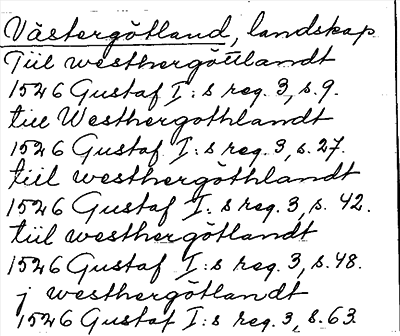 Västergötland, landskap
Tiil westhergötlandt
1526 Gustaf I:s reg. 3, s. 9.
till Westhergothlandt
1526 Gustaf I:s reg. 3, s. 27.
tiil westhergöthlandt
1526 Gustaf I:s reg. 3, s. 42.
tiil westhergötlandt
1526 Gustaf I:s reg. 3, s. 48.
j westhergötlandt
1526 Gustaf I:s reg. 3, s. 63